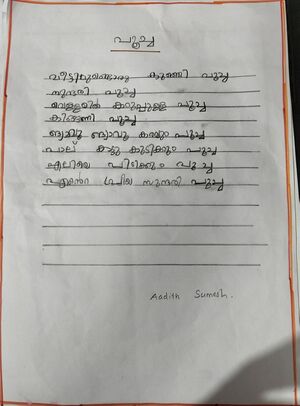 പൂച്ച
വീട്ടിലുണ്ടൊരു കുഞ്ഞി പൂച്ച
സുന്ദരി പൂച്ച
വെള്ളയിൽ കറുപ്പുള്ള പൂച്ച
കിങ്ങിണി പൂച്ച
മ്യാവൂ മ്യാവൂ കരയും പൂച്ച
പാല് കട്ടു കുടിക്കും പൂച്ച
എലിയെ പിടിക്കും പൂച്ച
എൻെറ പ്രിയ സുന്ദരി പൂച്ച
Aadith Sumesh.